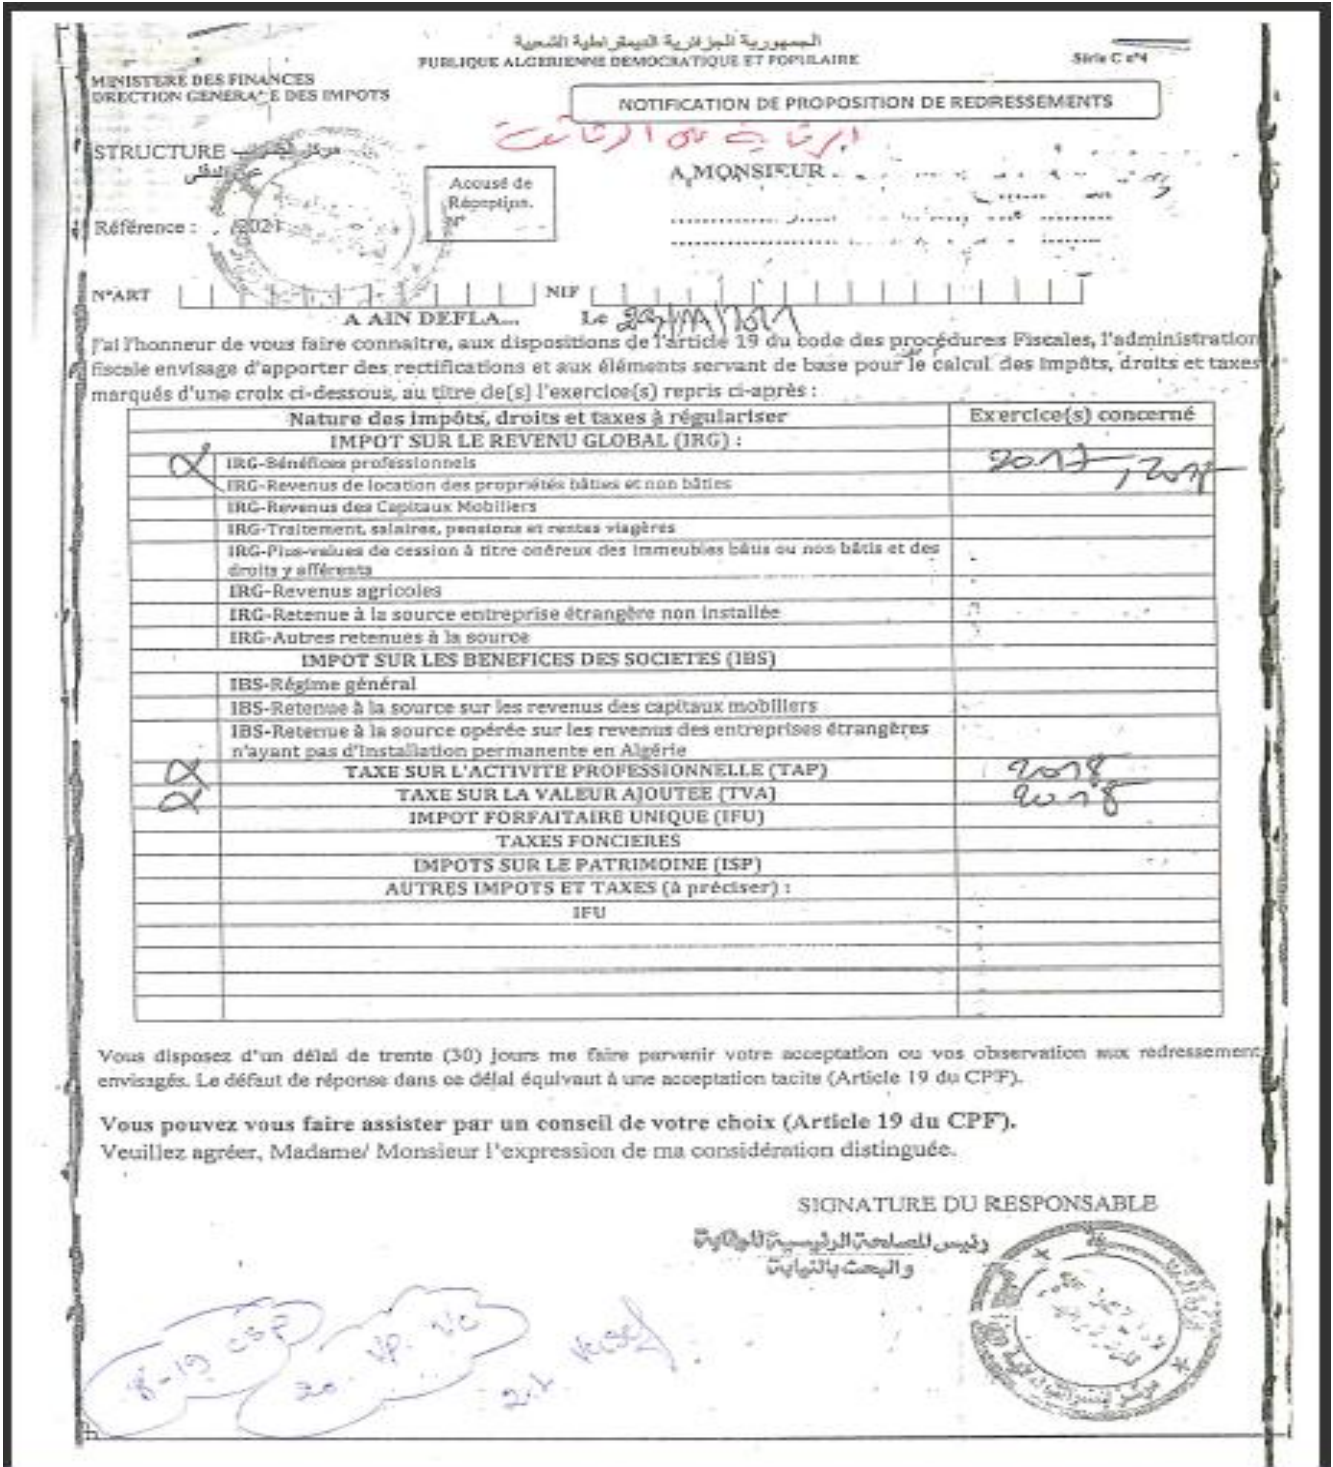 الجمهورية الجزائرية الديمقراطية الشعبية
PUBLIQUE ALGERIENNE DEMOCRATIQUE ET POPULAIRE
Série C n°4
MINISTERE DES FINANCES
DIRECTION GENERALE DES IMPOTS
NOTIFICATION DE PROPOSITION DE REDRESSEMENTS
STRUCTURE
A,MONSIEUR
Accusé de
Réception.
N°
Référence : /2021
N°ART
NIF
A AIN DEFLA... Le
J'ai l'honneur de vous faire connaitre, aux dispositions de l'article 19 du code des procédures Fiscales, l'administration
fiscale envisage d'apporter des rectifications et aux éléments servant de base pour le calcul des impôts, droits et taxes
marqués d'une croix ci-dessous, au titre de[s] l'exercice(s) repris ci-après :
Nature des impôts, droits et taxes à régulariser Exercice(s) concerné
IMPOT SUR LE REVENU GLOBAL (IRG) :
IRG-Bénéfices professionnels 2017
IRG-Revenus de location des propriétés bâties et non bâties
IRG-Revenus des Capitaux Mobiliers
IRG-Traitement, salaires, pensions et rentes viagères
IRG-Plus-values de cession à titre onéreux des immeubles bâtis ou non bâtis et des
droits y afférents
IRG-Revenus agricoles
IRG-Retenue à la source entreprise étrangère non installée
IRG-Autres retenues à la source
IMPOT SUR LES BENEFICES DES SOCIETES (IBS)
IBS-Régime général
IBS-Retenue à la source sur les revenus des capitaux mobiliers
IBS-Retenue à la source opérée sur les revenus des entreprises étrangères
n'ayant pas d'installation permanente en Algérie
TAXE SUR L'ACTIVITE PROFESSIONNELLE (TAP) 2018
TAXE SUR LA VALEUR AJOUTEE (TVA) 2018
IMPOT FORFAITAIRE UNIQUE (IFU)
TAXES FONCIERES
IMPOTS SUR LE PATRIMOINE (ISP)
AUTRES IMPOTS ET TAXES (à préciser) :
IFU
Vous disposez d'un délai de trente (30) jours me faire parvenir votre acceptation ou vos observation aux redressement
envisagés. Le défaut de réponse dans ce délai équivaut à une acceptation tacite (Article 19 du CPF).
Vous pouvez vous faire assister par un conseil de votre choix (Article 19 du CPF).
Veuillez agréer, Madame/ Monsieur l'expression de ma considération distinguée.
SIGNATURE DU RESPONSABLE
رئيس المصلحة الرئيسية للرقابة
و البحث بالنيابة